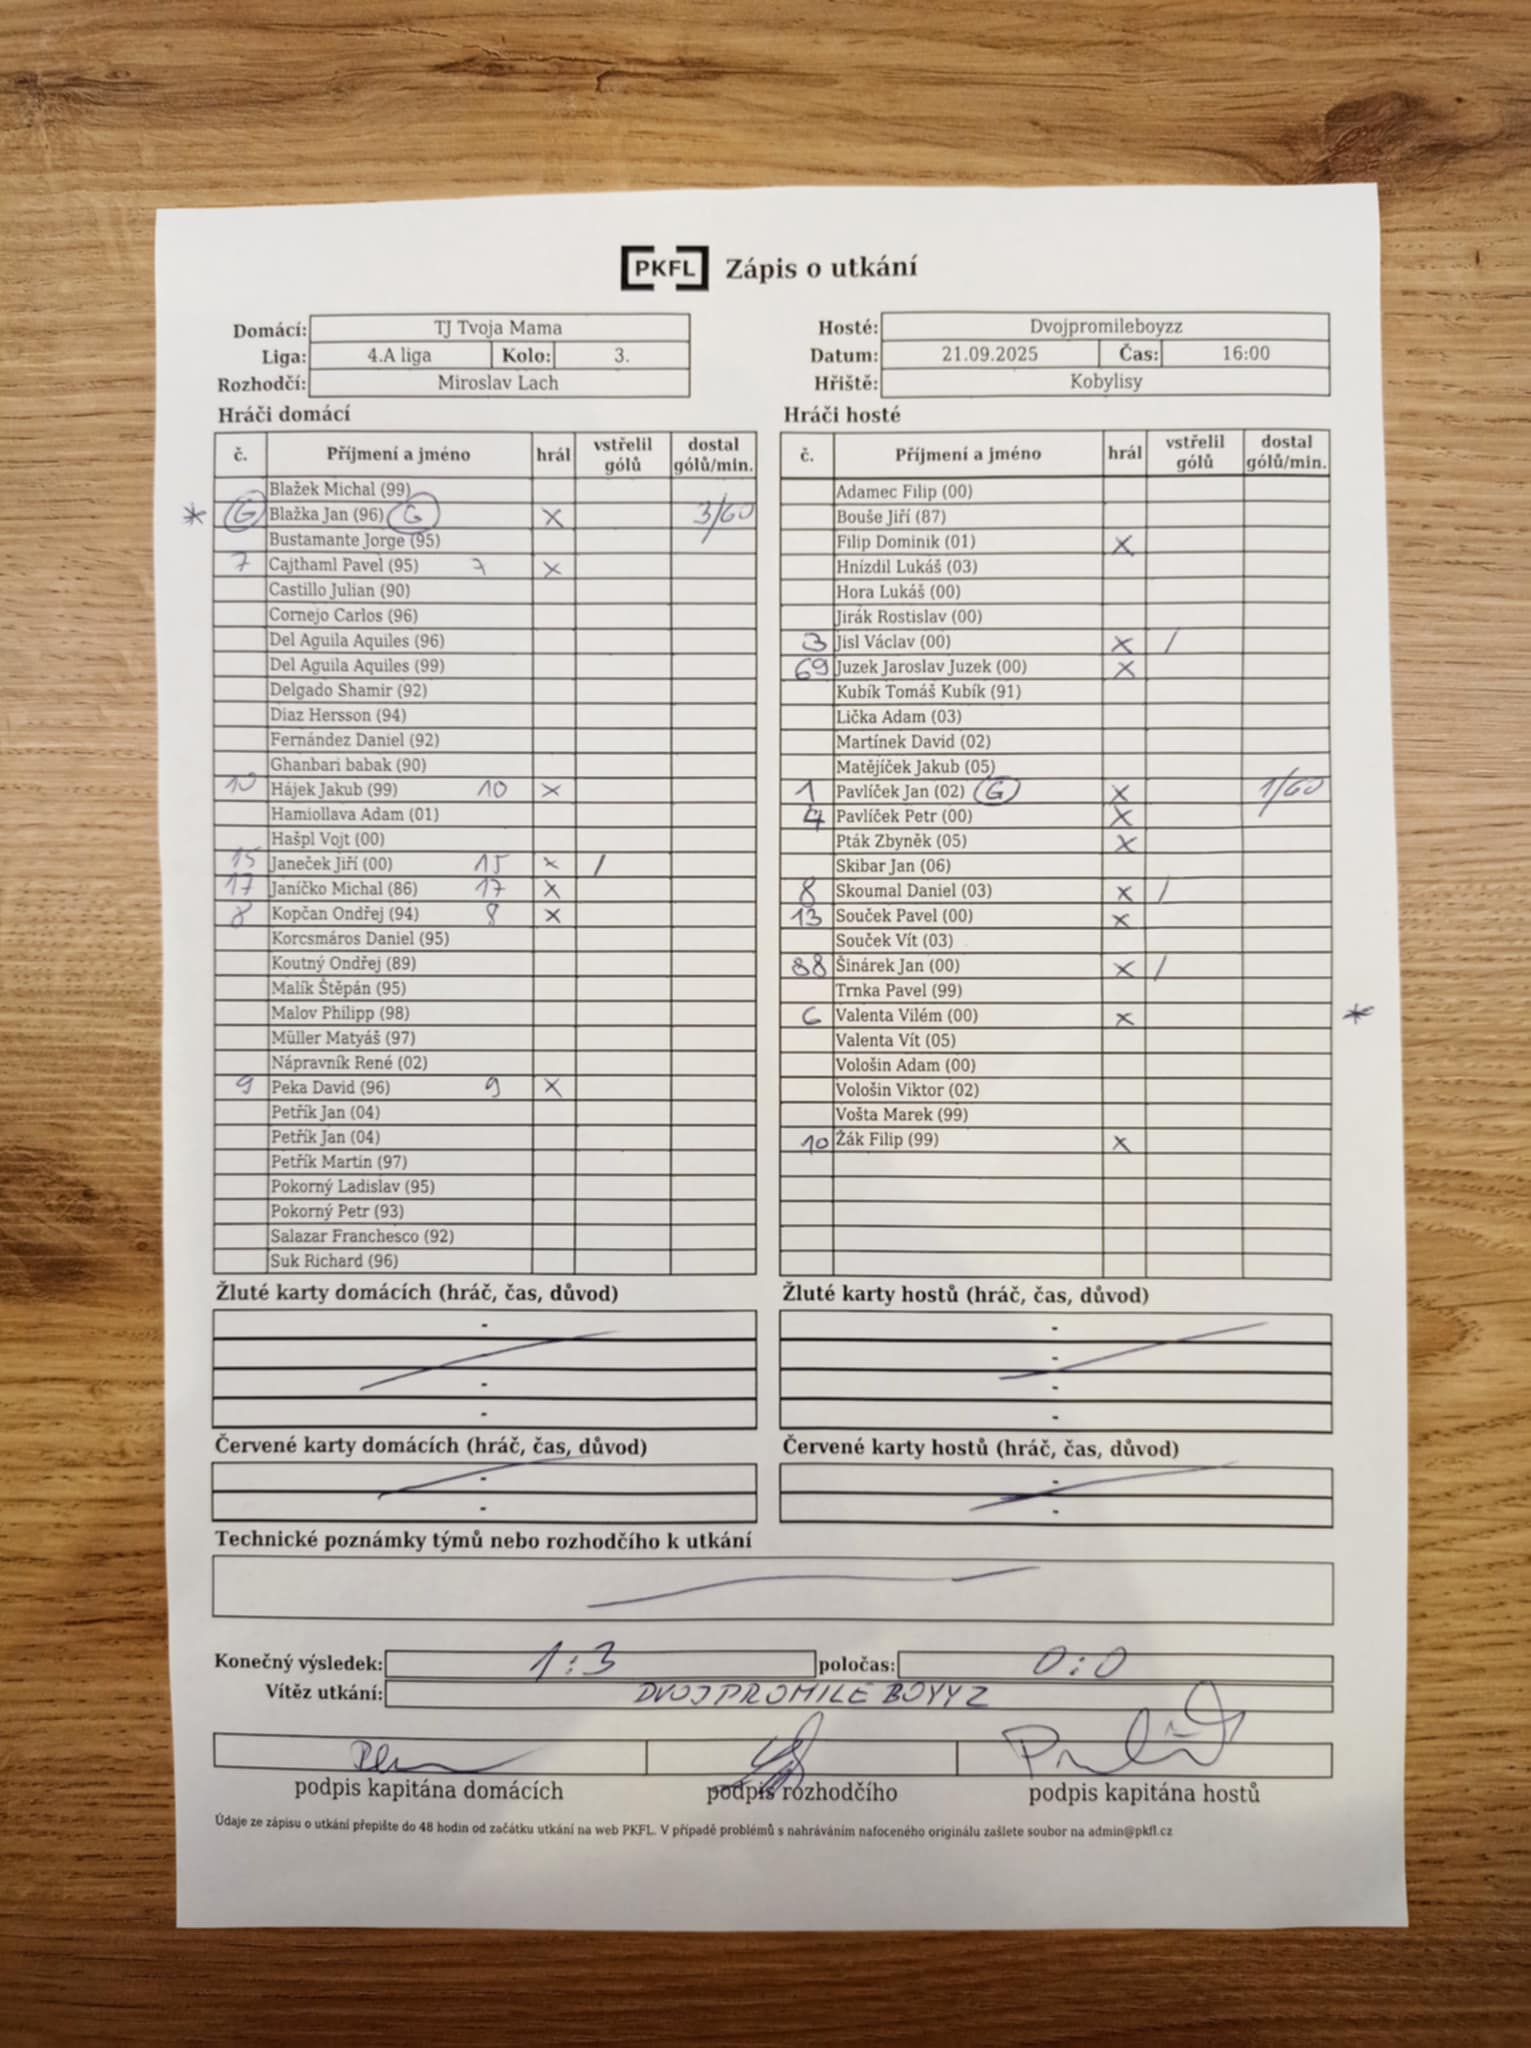 PKFL Zápis o utkání
Domácí: TJ Tvoja Mama
Liga: 4.A liga Kolo: 3.
Rozhodčí: Miroslav Lach
Hosté: Dvojpromileboyzz
Datum: 21.09.2025 Čas: 16:00
Hřiště: Kobylisy
Hráči domácí
č. Příjmení a jméno hrál vstřelil gólů dostal gólů/min.
Blažek Michal (99)
* G Blažka Jan (96) G X 3/60
Bustamante Jorge (95)
7 Cajthaml Pavel (95) 7 X
Castillo Julian (90)
Cornejo Carlos (96)
Del Aguila Aquiles (96)
Del Aguila Aquiles (99)
Delgado Shamir (92)
Diaz Hersson (94)
Fernández Daniel (92)
Ghanbari babak (90)
10 Hájek Jakub (99) 10 X
Hamiollava Adam (01)
Hašpl Vojt (00)
15 Janeček Jiří (00) 15 X /
17 Janíčko Michal (86) 17 X
8 Kopčan Ondřej (94) 8 X
Korcsmáros Daniel (95)
Koutný Ondřej (89)
Malík Štěpán (95)
Malov Philipp (98)
Müller Matyáš (97)
Nápravník René (02)
9 Peka David (96) 9 X
Petřík Jan (04)
Petřík Jan (04)
Petřík Martin (97)
Pokorný Ladislav (95)
Pokorný Petr (93)
Salazar Franchesco (92)
Suk Richard (96)
Hráči hosté
č. Příjmení a jméno hrál vstřelil gólů dostal gólů/min.
Adamec Filip (00)
Bouše Jiří (87)
Filip Dominik (01) X
Hnízdil Lukáš (03)
Hora Lukáš (00)
Jirák Rostislav (00)
3 Jisl Václav (00) X /
69 Juzek Jaroslav Juzek (00) X
Kubík Tomáš Kubík (91)
Lička Adam (03)
Martínek David (02)
Matějíček Jakub (05)
1 Pavlíček Jan (02) G X 1/60
4 Pavlíček Petr (00) X
Pták Zbyněk (05) X
Skibar Jan (06)
8 Skoumal Daniel (03) X /
13 Souček Pavel (00) X
Souček Vít (03)
88 Šinárek Jan (00) X /
Trnka Pavel (99)
6 Valenta Vilém (00) X *
Valenta Vít (05)
Vološin Adam (00)
Vološin Viktor (02)
Vošta Marek (99)
10 Žák Filip (99) X
Žluté karty domácích (hráč, čas, důvod)
-
-
-
Žluté karty hostů (hráč, čas, důvod)
-
-
-
-
Červené karty domácích (hráč, čas, důvod)
-
-
Červené karty hostů (hráč, čas, důvod)
-
-
Technické poznámky týmů nebo rozhodčího k utkání
Konečný výsledek: 1:3 poločas: 0:0
Vítěz utkání: DVOJPROMILE BOYYZ
podpis kapitána domácích podpis rozhodčího podpis kapitána hostů
Údaje ze zápisu o utkání přepište do 48 hodin od začátku utkání na web PKFL. V případě problémů s nahráváním nafoceného originálu zašlete soubor na admin@pkfl.cz